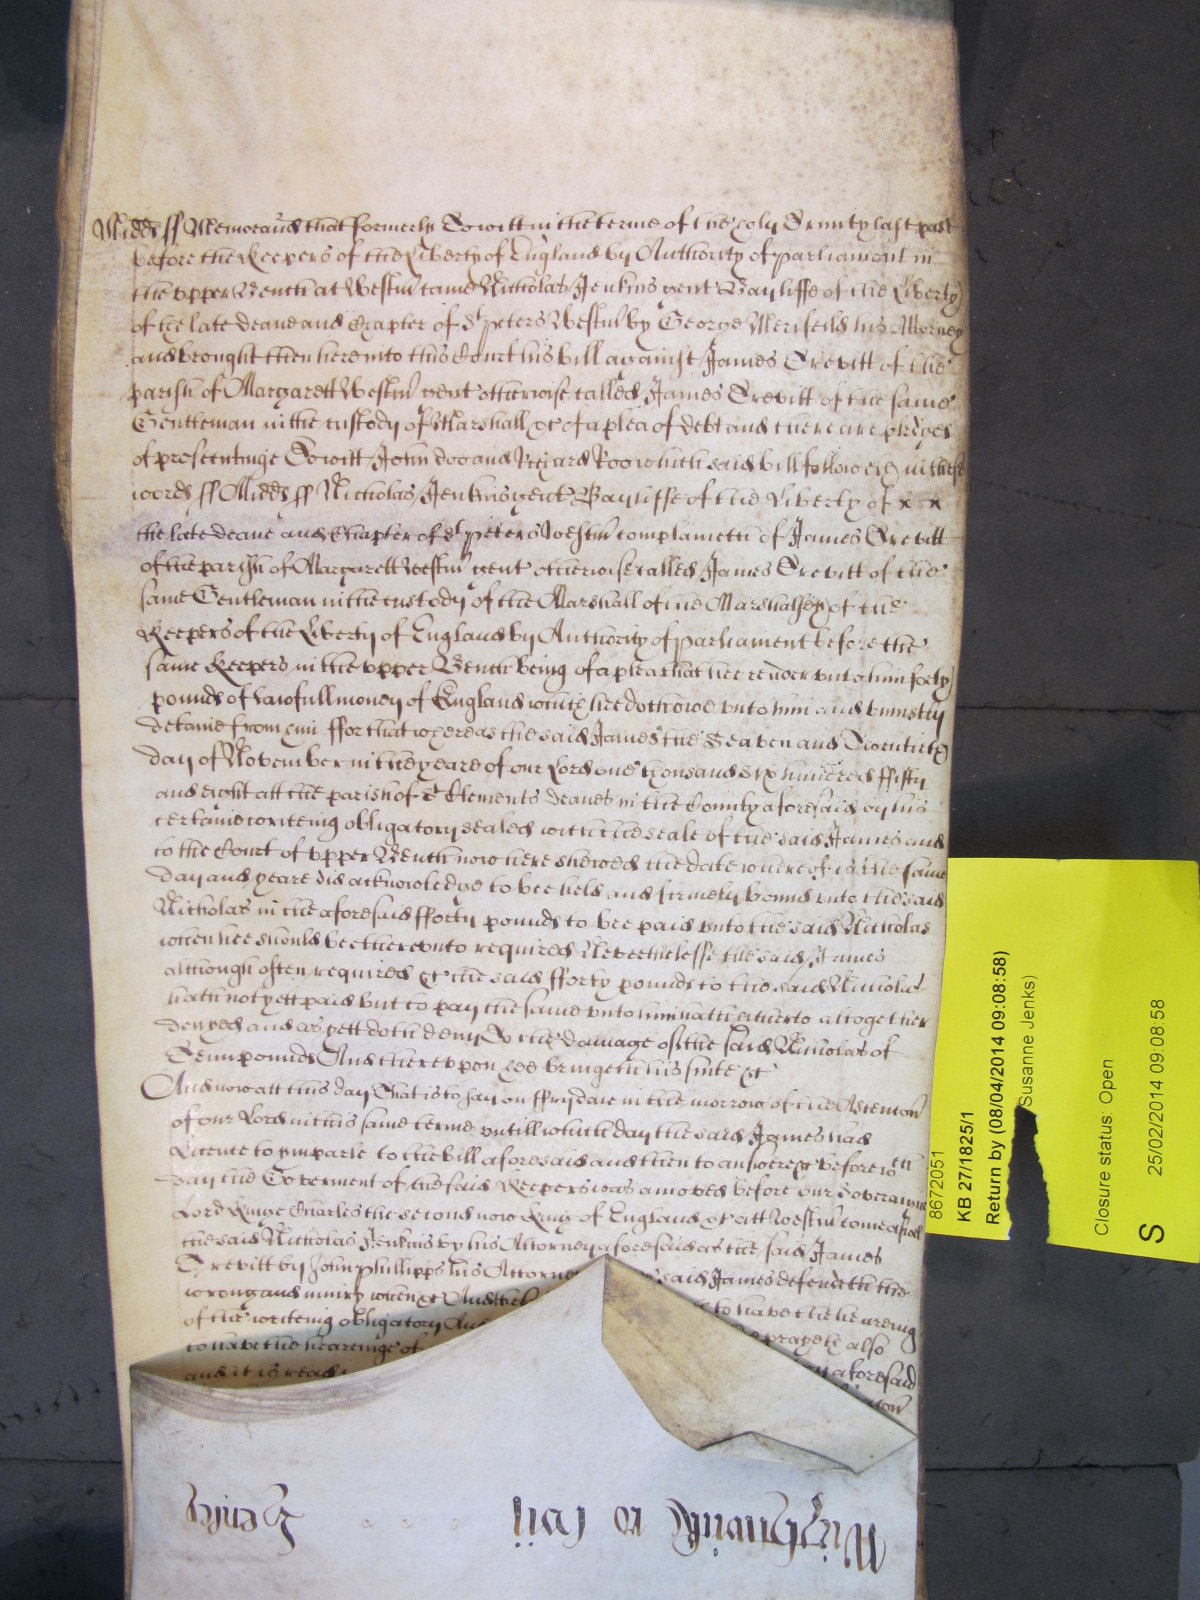 Midds ss Memorand that formerly Towitt in the terme of the holy Trinity last past
before the Keepers of the Liberty of England by Authority of parliament in
the upper Bench at Westm came Nicholas Jenkins gent Bayliffe of the Liberty
of the late deane and Chapter of St peters Westm by George Meriseild his Attorney
and brought then here into this Court his bill against James Trevitt of the
parish of Margarett Westm gent otherwise called James Trevitt of the same
Gentleman in the custody of Marshall &c of a plea of debt and there are pledges
of prosecutinge Towitt John doo and Richard Roo which said bill followeth in these
words ss Midds ss Nicholas Jenkins gent Bayliffe of the Liberty of x x
the late deane and Chapter of St peters Westm complaineth of James Trevitt
of the parish of Margarett Westm gent otherwise called James Trevitt of the
same Gentleman in the custody of the Marshall of the Marshalsey of the
Keepers of the Liberty of England by Authority of parliament before the
same Keepers in the upper Bench being of a plea that hee render unto him forty
pounds of lawfull money of England which hee doth owe unto him and uniustly
detaine from him ffor that whereas the said James the Seaven and Twentieth
day of November in the yeare of our Lord one thousand six hundred ffifty
and eight att the parish of St Clements deanes in the County aforesaid by his
certaine writeing obligatory sealed with the seale of the said James and
to the Court of upper Bench now here shewed the date whereof is the same
day and yeare did acknowledge to bee held and firmely bound unto the said
Nicholas in the aforesaid fforty pounds to bee paid unto the said Nicholas
when hee should bee thereunto required Neverthelesse the said James
although often required &c the said fforty pounds to the said Nicholas
hath not yett paid but to pay the same unto him hath hitherto altogether
denyed and as yett doth deny To the damage of the said Nicholas of
Tenn pounds And thereupon hee bringeth his suite &c
And now att this day That is to say on ffryday in the morrow of the Ascention
of our Lord in this same terme untill which day the said James had
Licence to imparle to the bill aforesaid and then to answere &c before which
day the Goverment of the said Keepers was amoved before our Soveraigne
Lord Kinge Charles the second now King of England &c att Westm come aswell
the said Nicholas Jenkins by his Attorney aforesaid as the said James
Trevitt by John Phillipps his Attorney said James defendeth the
wrong and iniury when &c And to have the heareing
of the writeing obligatory And prayeth also
to have the heareinge of aforesaid
and it is read
8672051
KB 27/1825/1
Return by (08/04/2014 09:08:58)
Susanne Jenks)
Closure status: Open
S 25/02/2014 09:08:58